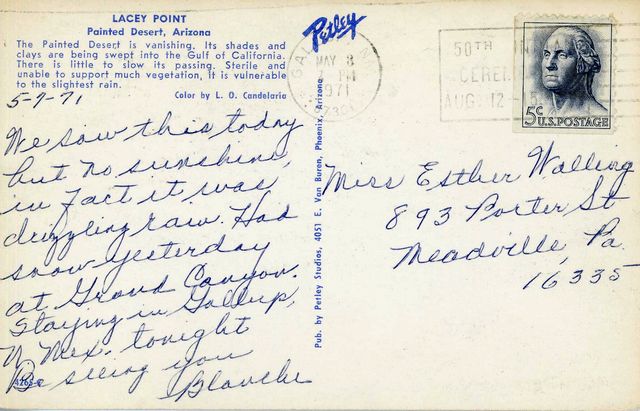 LACEY POINT
Painted Desert, Arizona
The Painted Desert is vanishing. Its shades and
clays are being swept into the Gulf of California.
There is little to slow its passing. Sterile and
unable to support much vegetation, it is vulnerable
to the slightest rain.
Color by L. O. Candelaria
5-7-71
We saw this today
but no sunshine,
in fact it was
drizzling rain. Had
snow yesterday
at Grand Canyon.
Staying in Gallup,
N Mex. tonight
Be seeing you
Blanche
Petley
Pub. by Petley Studios, 4051 E. Van Buren, Phoenix, Arizona
MAY 8
PM
1971
50TH
CEREM
AUG 12
5c U.S. POSTAGE
Miss Esther Walling
893 Porter St
Meadville, Pa.
16335